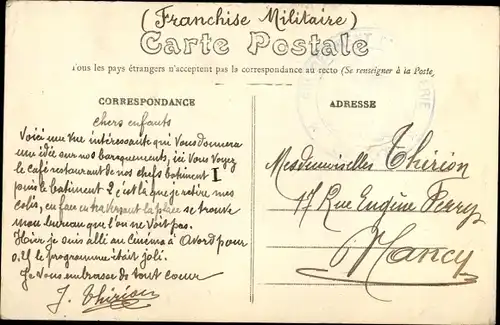 (Franchise Militaire)
Carte Postale
Tous les pays étrangers n'acceptent pas la correspondance au recto (Se renseigner à la Poste)
CORRESPONDANCE
chers enfants
Voici une vue intéressante qui vous donnera
une idée sur nos baraquements, ici vous voyez
le café restaurant de nos chefs batiment I
puis le batiment 2, c'est là que je retire mes
colis, en face en traversant la place se trouve
mon bureau que l'on ne voit pas.
Hier je suis allé au cinéma à Avord pour
0.25 le programme était joli.
Je vous embrasse de tout coeur
J. Thirion
ADRESSE
Mesdemoiselles Thirion
17 Rue Eugène Ferry
Nancy